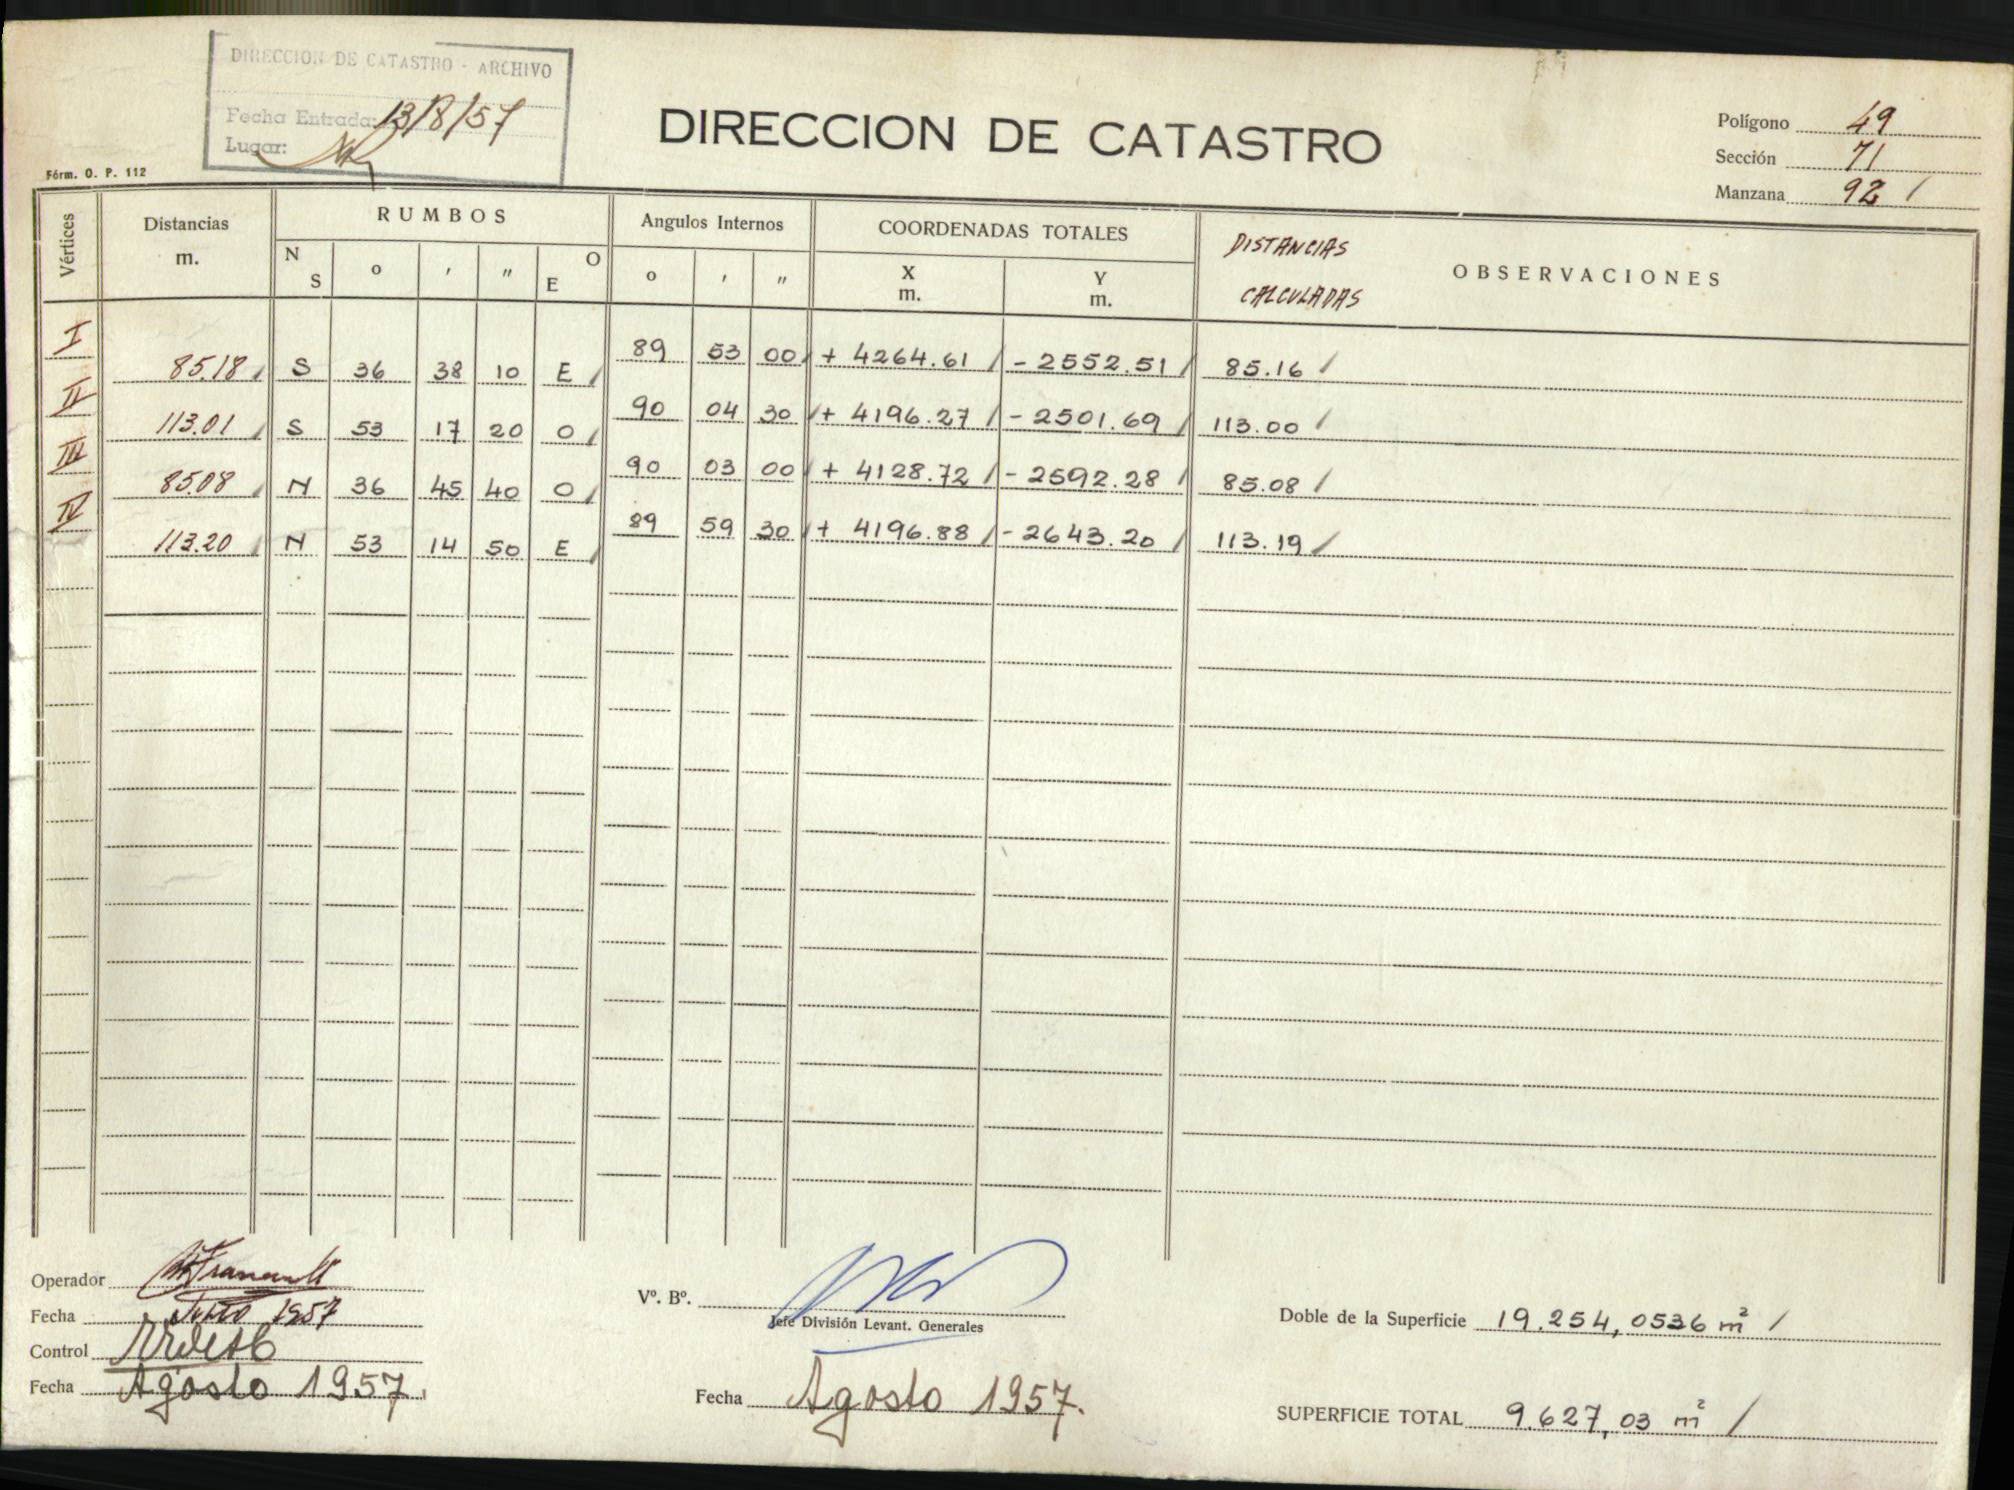 DIRECCION DE CATASTRO - ARCHIVO
Fecha Entrada: 13/8/57
Lugar:
Fórm. O. P. 112
DIRECCION DE CATASTRO
Polígono 49
Sección 71
Manzana 92 /
Vértices Distancias m. RUMBOS N S o ' " O E Angulos Internos o ' " COORDENADAS TOTALES X m. Y m. DISTANCIAS CALCULADAS OBSERVACIONES
I 89 53 00 / + 4264.61 / - 2552.51 /
85.18 / S 36 38 10 E / 85.16 /
II 90 04 30 / + 4196.27 / - 2501.69 /
113.01 / S 53 17 20 O / 113.00 /
III 90 03 00 / + 4128.72 / - 2592.28 /
85.08 / N 36 45 40 O / 85.08 /
IV 89 59 30 / + 4196.88 / - 2643.20 /
113.20 / N 53 14 50 E / 113.19 /
Operador
Fecha 1957
Control
Fecha Agosto 1957.
Vº. Bº.
Jefe División Levant. Generales
Fecha Agosto 1957.
Doble de la Superficie 19.254,0536 m² /
SUPERFICIE TOTAL 9.627,03 m² /